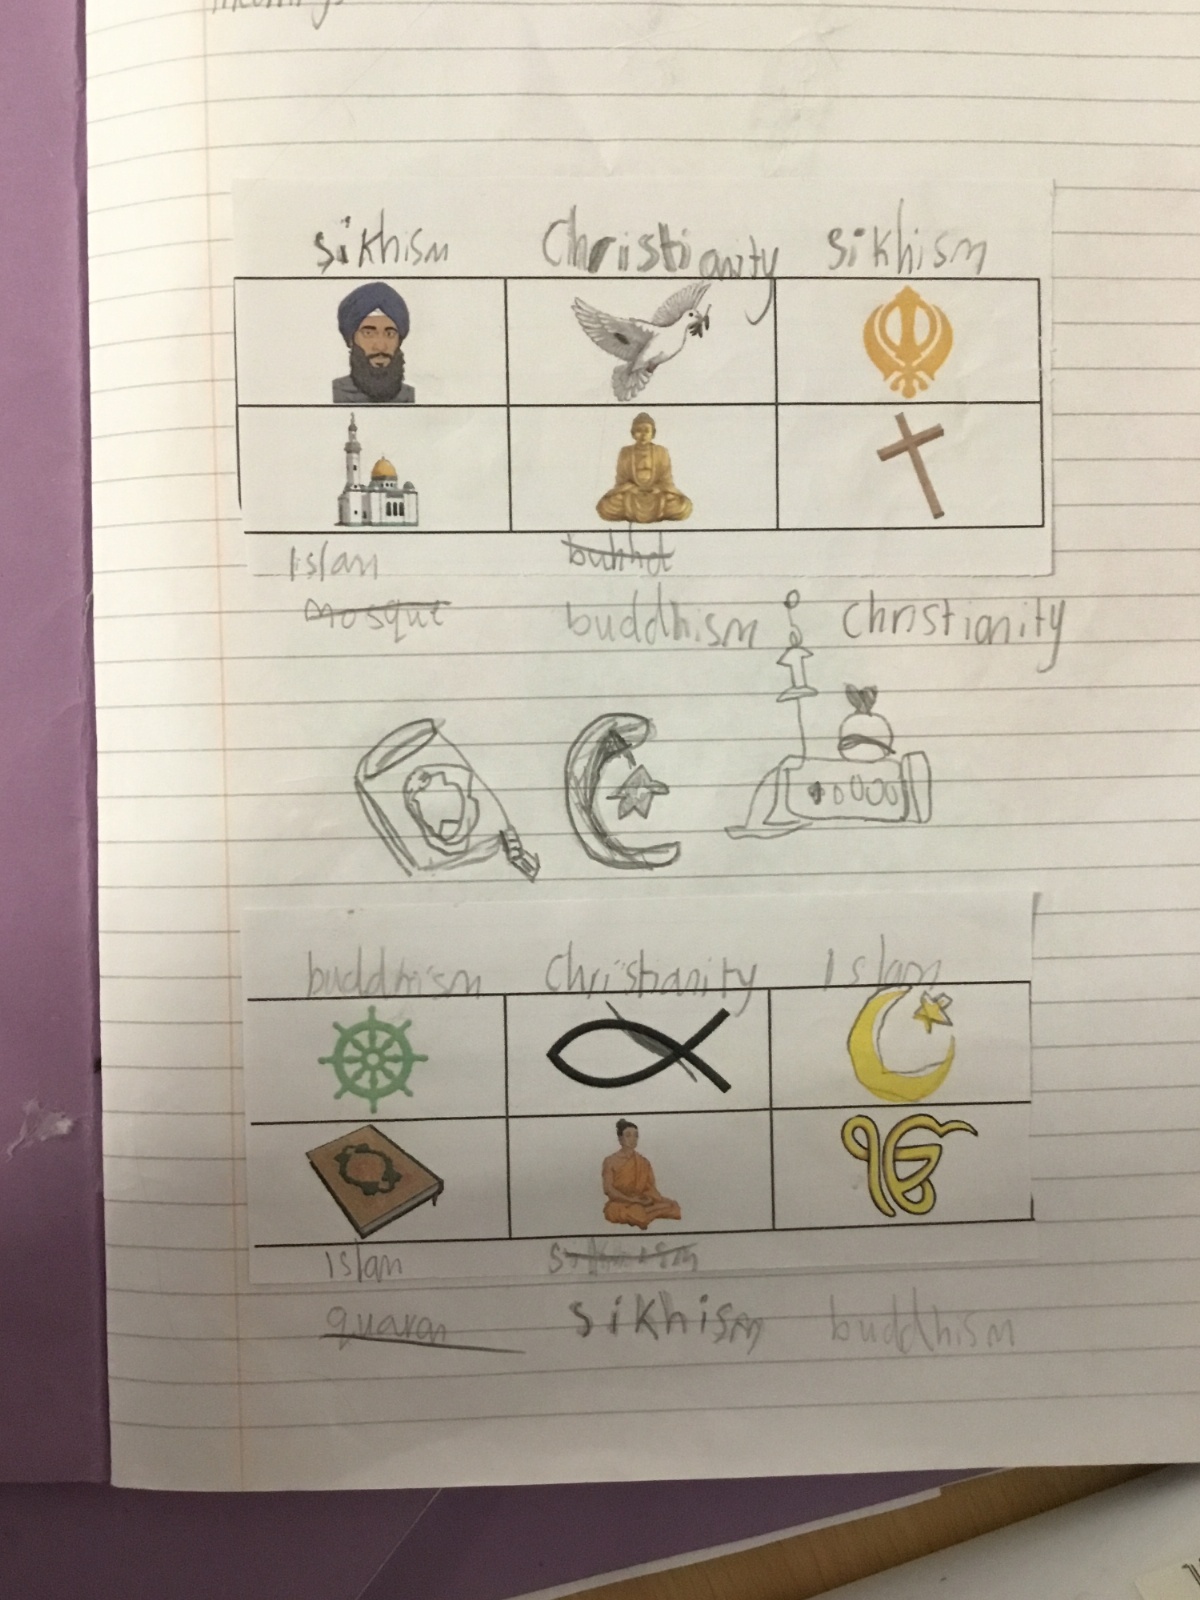 sikhism Christianity sikhism
Islam
mosque buddhism Christianity
buddhism Christianity Islam
Islam
quaran sikhism buddhism